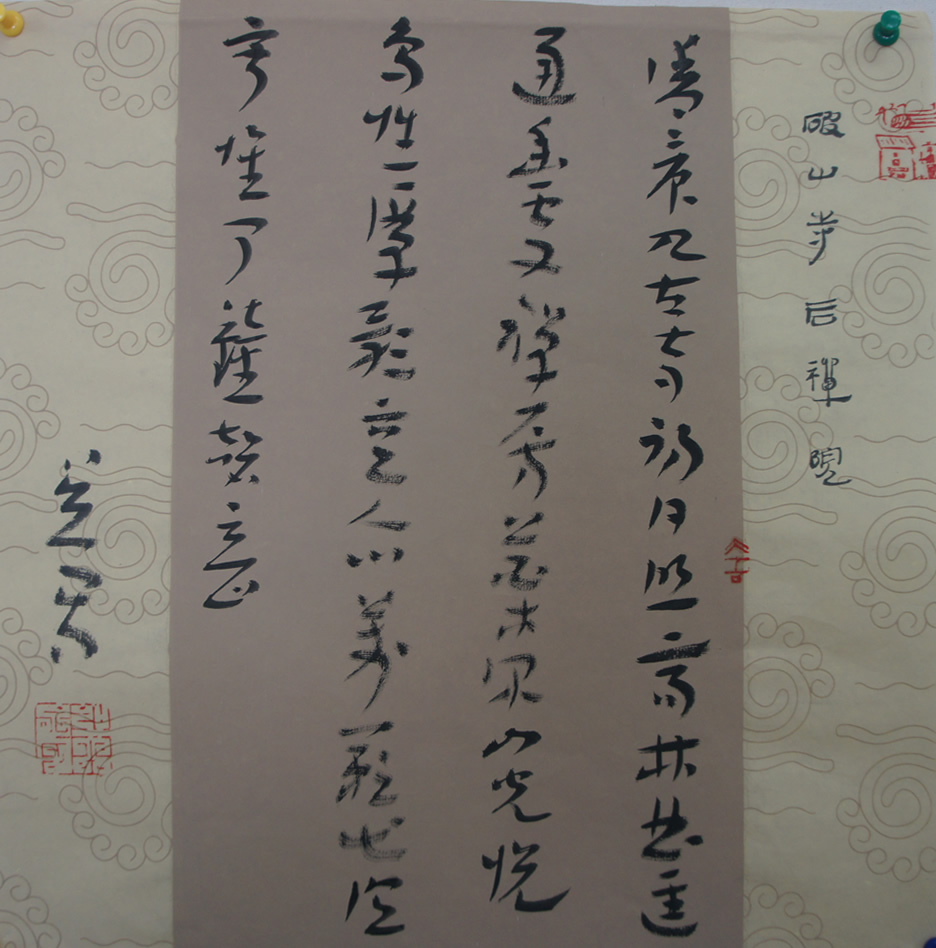 破山寺后禪院
清晨入古寺初日照高林曲逕
通幽處禪房花木深山光悦
鸟性潭影空人心萬籟此俱
寂惟聞鐘磬音